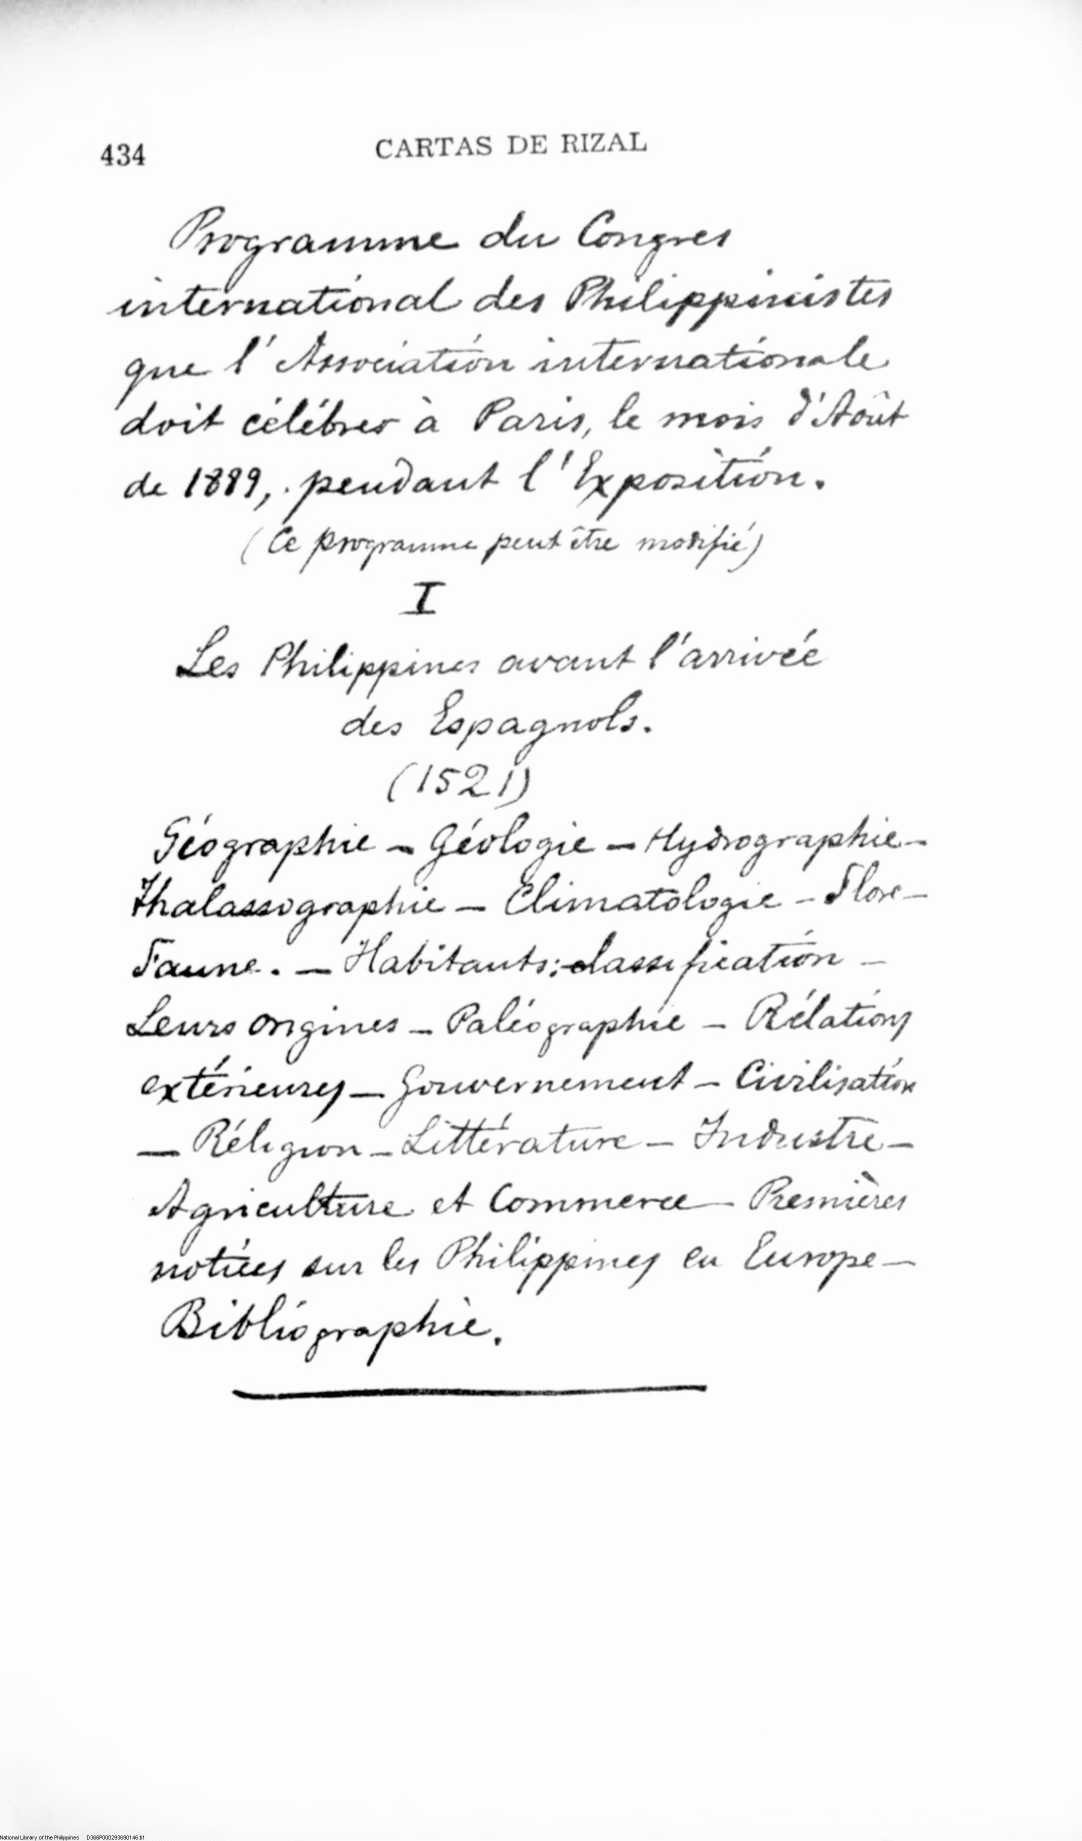 434
CARTAS DE RIZAL
Programme du Congres
international des Philippinistes
que l'Association internationale
doit célébrer à Paris, le mois d'Août
de 1889, pendant l'Exposition.
(Ce programme peut être modifié)
I
Les Philippines avant l'arrivée
des Espagnols.
(1521)
Géographie - Géologie - Hydrographie -
Thalassographie - Climatologie - Flore -
Faune. - Habitants: classification -
Leurs origines - Paléographie - Rélations
extérieures - Gouvernement - Civilisation
- Réligion - Littérature - Industrie -
Agriculture et Commerce - Premières
notices sur les Philippines en Europe -
Bibliographie.
National Library of the Philippines D366P000293690146.tif